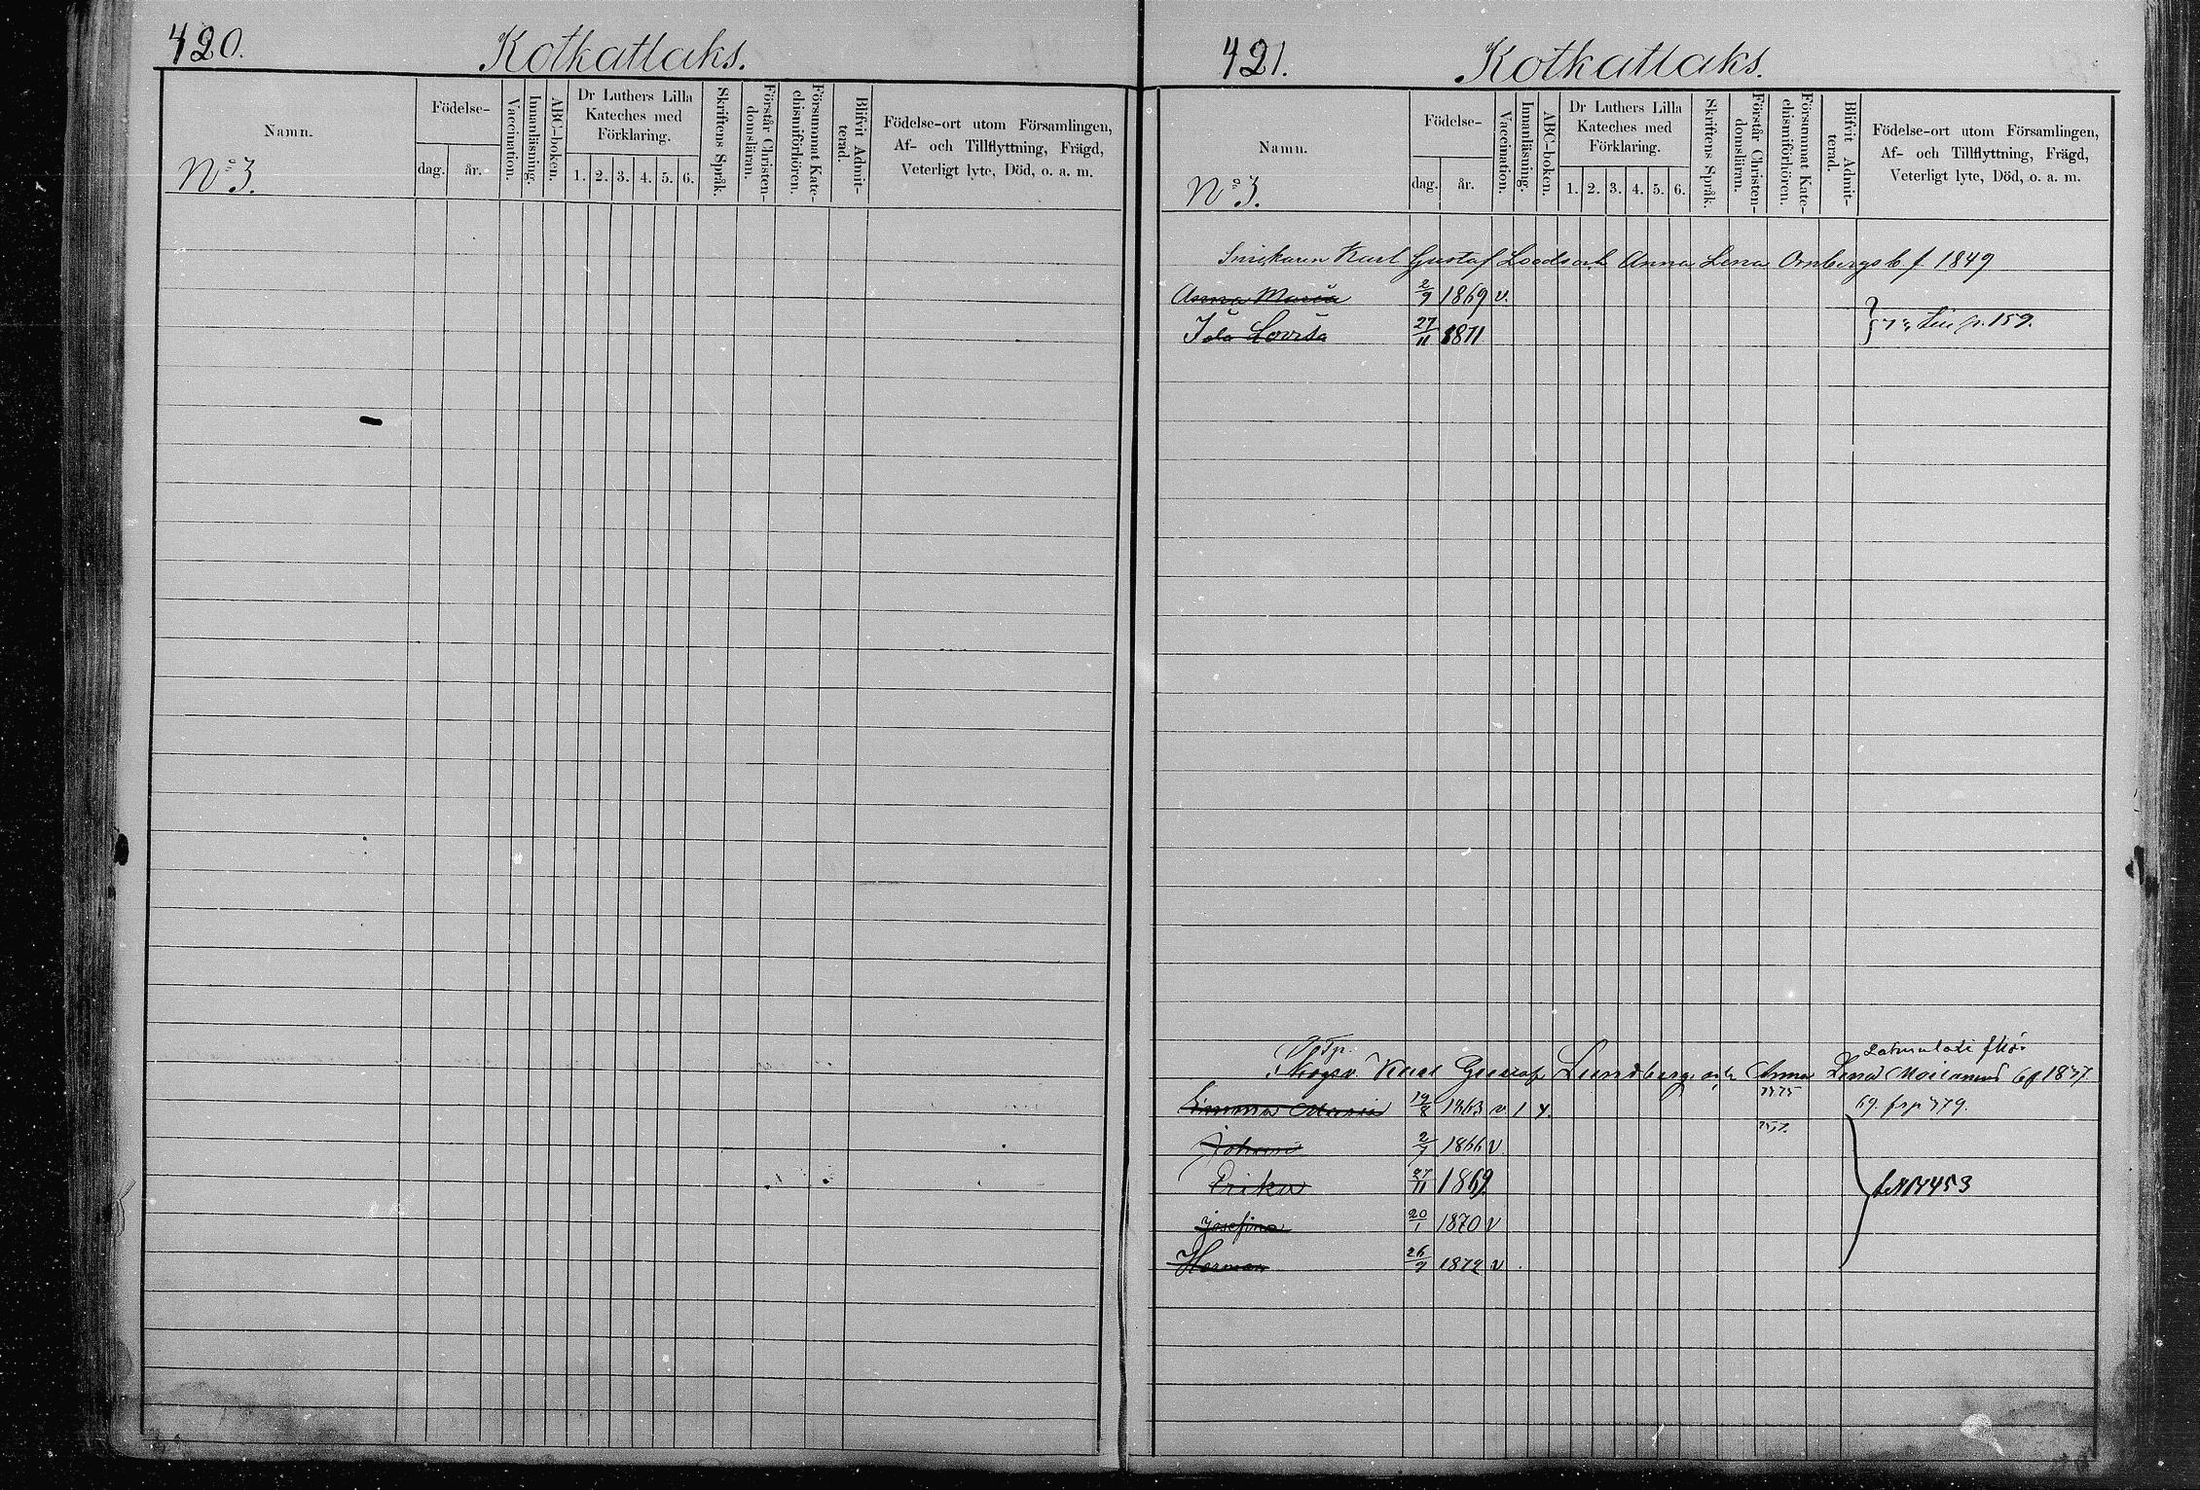 420.
Kotkatlaks.
Namn.
Födelse-
dag.
år.
Vaccination.
Innanläsning.
ABC-boken.
Dr Luthers Lilla
Kateches med
Förklaring.
1. 2. 3. 4. 5. 6.
Skriftens Språk.
Förstår Christen-
domsläran.
Försummat Kate-
chismiförhören.
Blifvit Admit-
terad.
Födelse-ort utom Församlingen,
Af- och Tillflyttning, Frägd,
Veterligt lyte, Död, o. a. m.
No 3.
421.
Kotkatlaks.
Namn.
Födelse-
dag.
år.
Vaccination.
Innanläsning.
ABC-boken.
Dr Luthers Lilla
Kateches med
Förklaring.
1. 2. 3. 4. 5. 6.
Skriftens Språk.
Förstår Christen-
domsläran.
Försummat Kate-
chismiförhören.
Blifvit Admit-
terad.
Födelse-ort utom Församlingen,
Af- och Tillflyttning, Frägd,
Veterligt lyte, Död, o. a. m.
No 3.
Karl Gustaf Anna Lena b f 1849
Anna Maria 2/9 1869 v.
Ida Lovisa 27/11 1871
p. 159.
Karl Gustaf Lundberg och Anna Lena
Emma Maria 19/8 1863 v 1 y.
2/7 1866 v
Erika 27/11 1869
Josefina 20/1 1870 v
Herman 26/9 1872 v
453